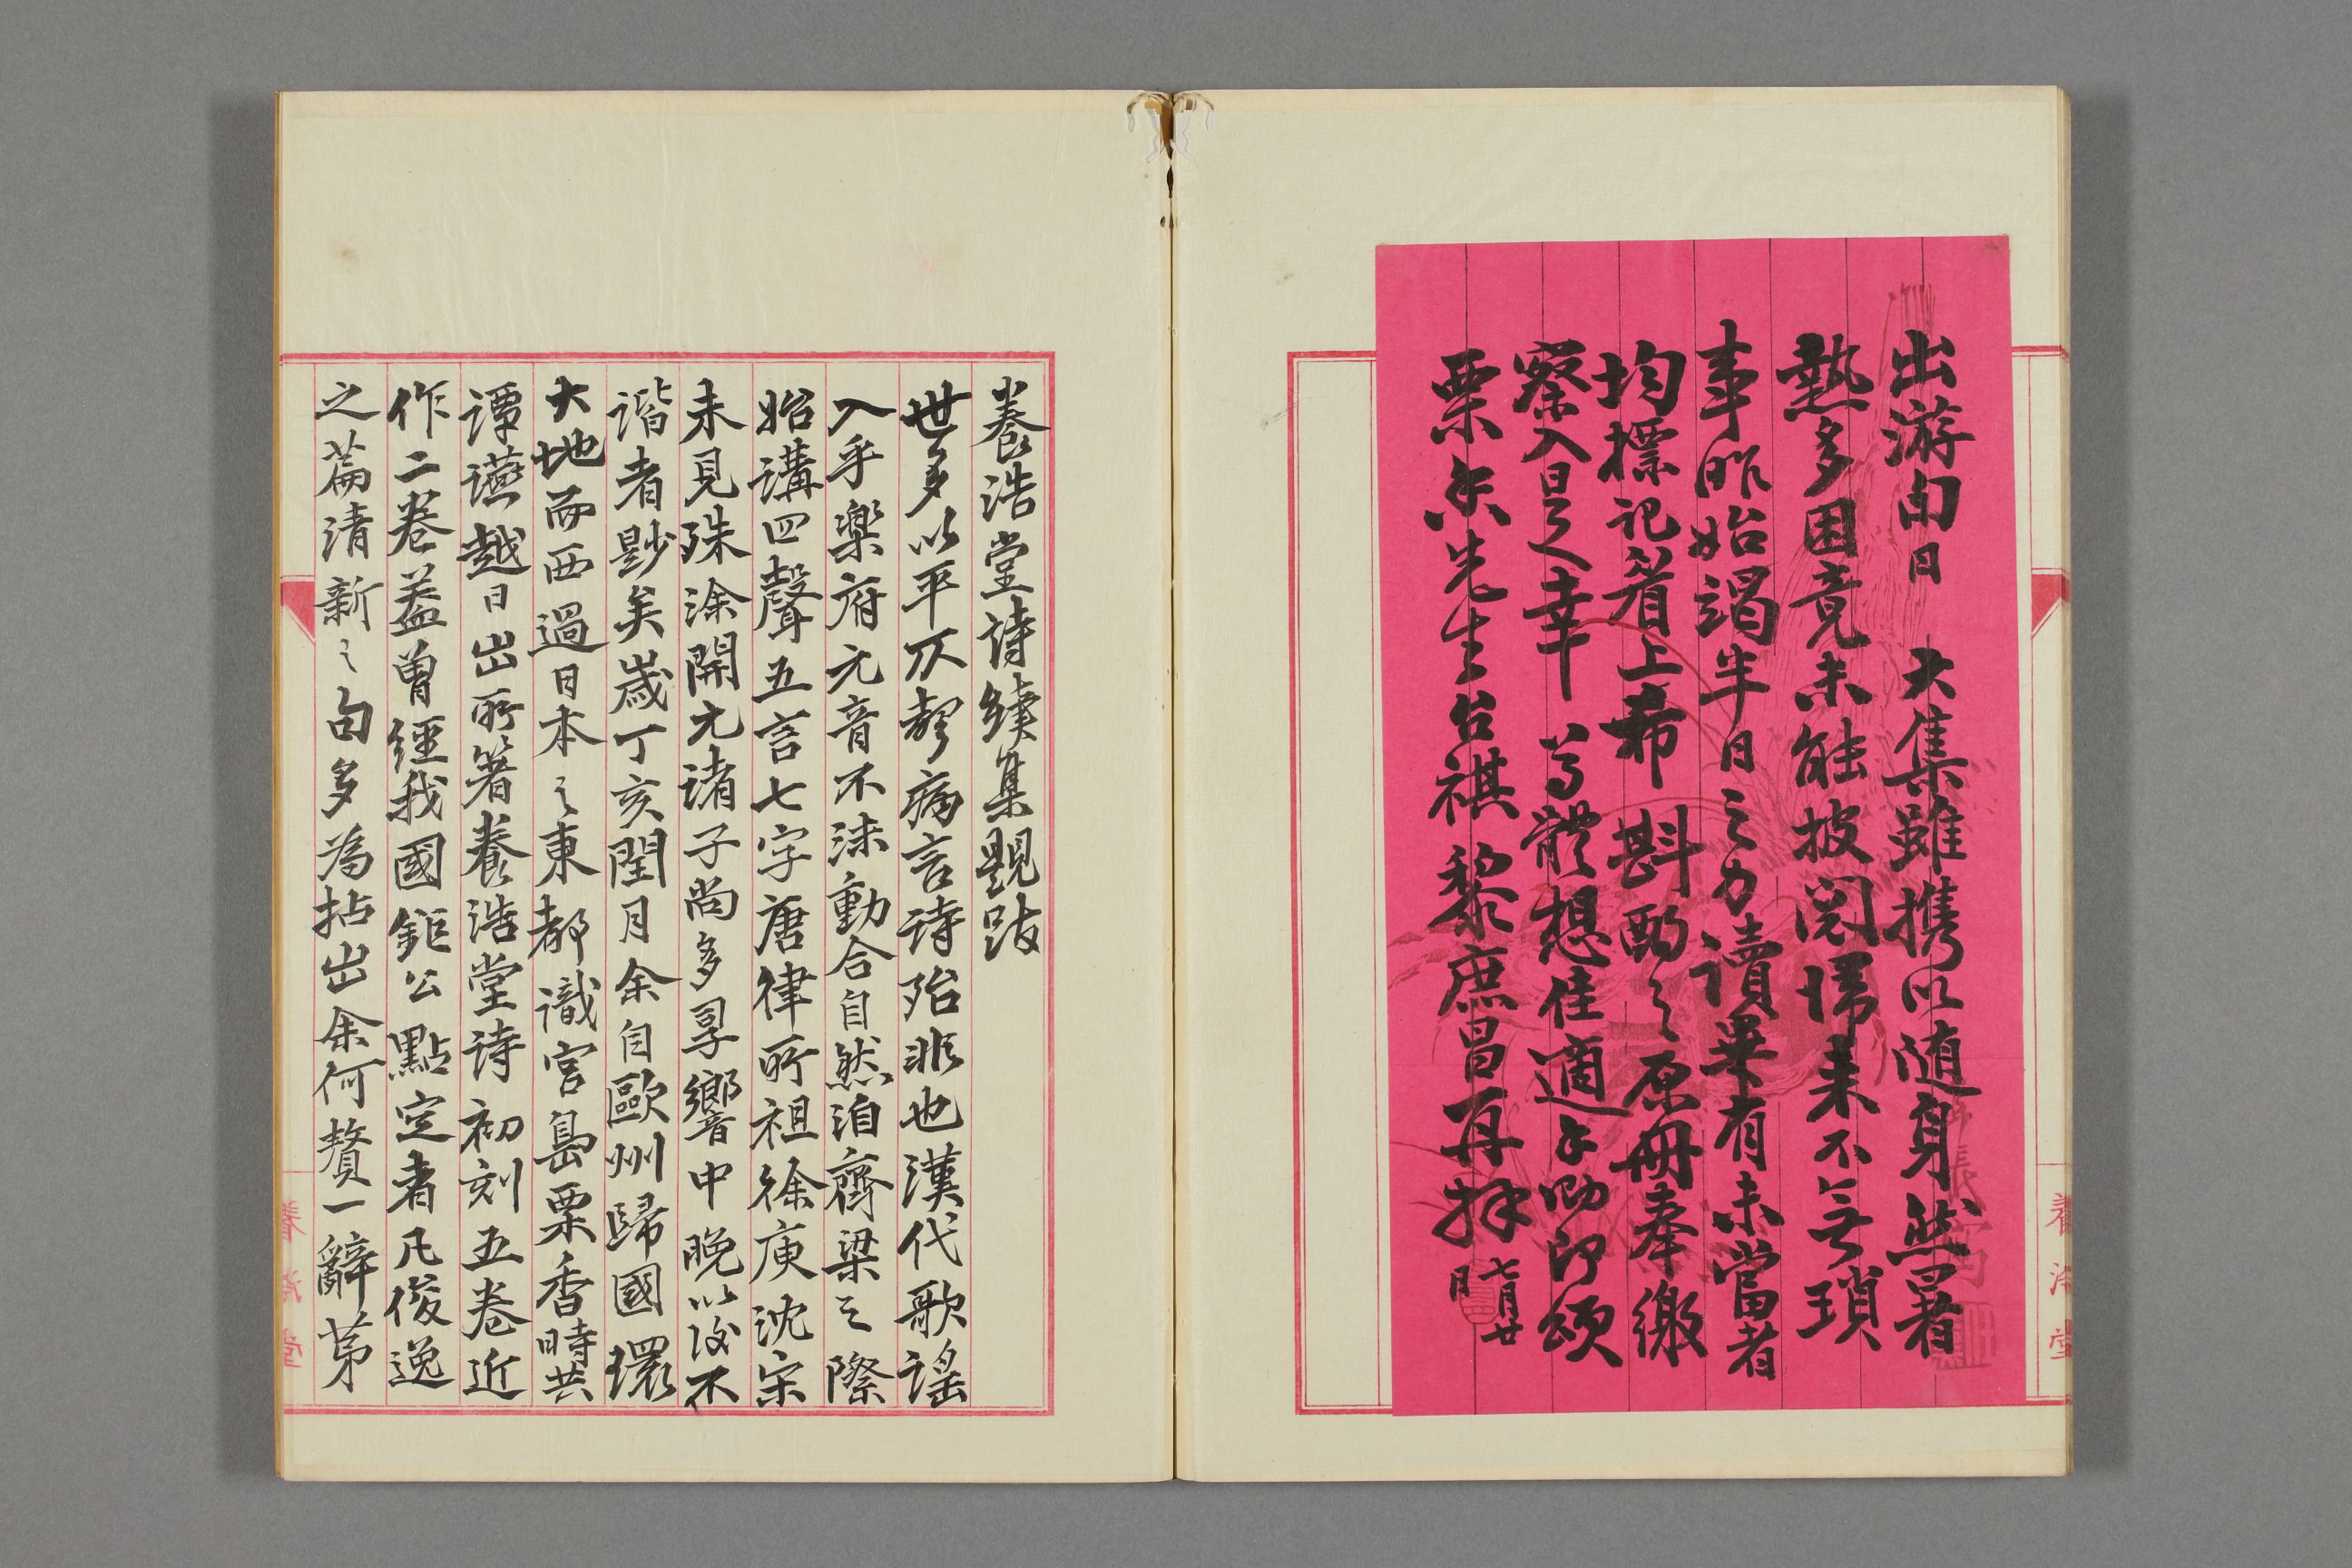 出游旬日　大集雖携以随身然暑
熱多困竟未能披閱歸来不無瑣
事昨始竭半日之力讀畢有未當者
均標記着上希　斟酌之原冊奉繳
察入是幸　尊體想佳適手泐即頌
栗香先生台祺　黎庶昌再拜　七月廿
日
養浩堂詩續集題跋
世多以平仄聲病言詩殆非也漢代歌謡
入乎樂府元音不涉動合自然洎齊梁之際
始講四聲五言七字唐律所祖徐庾沈宋
未見殊涂開元諸子尚多享響中晚以後不
諧者尠矣歲丁亥閏月余自歐州歸國環
大地而西過日本之東都識宮島栗香時共
譚讌越日出所著養浩堂詩初刻五卷近
作二卷蓋曽經我國鉅公點定者凡俊逸
之篇清新之句多為拈出余何贅一辭苐
養浩堂
養浩堂